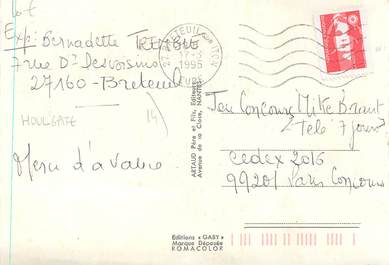 Exp: Bernadette TREMBLE
7 rue Dr Desvoisins
27160 - Breteuil
HOULGATE
14
Merci d'avance
BRETEUIL sur ITON
17-3
1995
EURE
ARTAUD Père et Fils, Editeurs
Avenue de la Close, NANTES
Jeu Concours Mike Brant
Télé 7 jours
cedex 2016
99201 Paris Concours
Editions « GABY »
Marque Déposée
ROMACOLOR